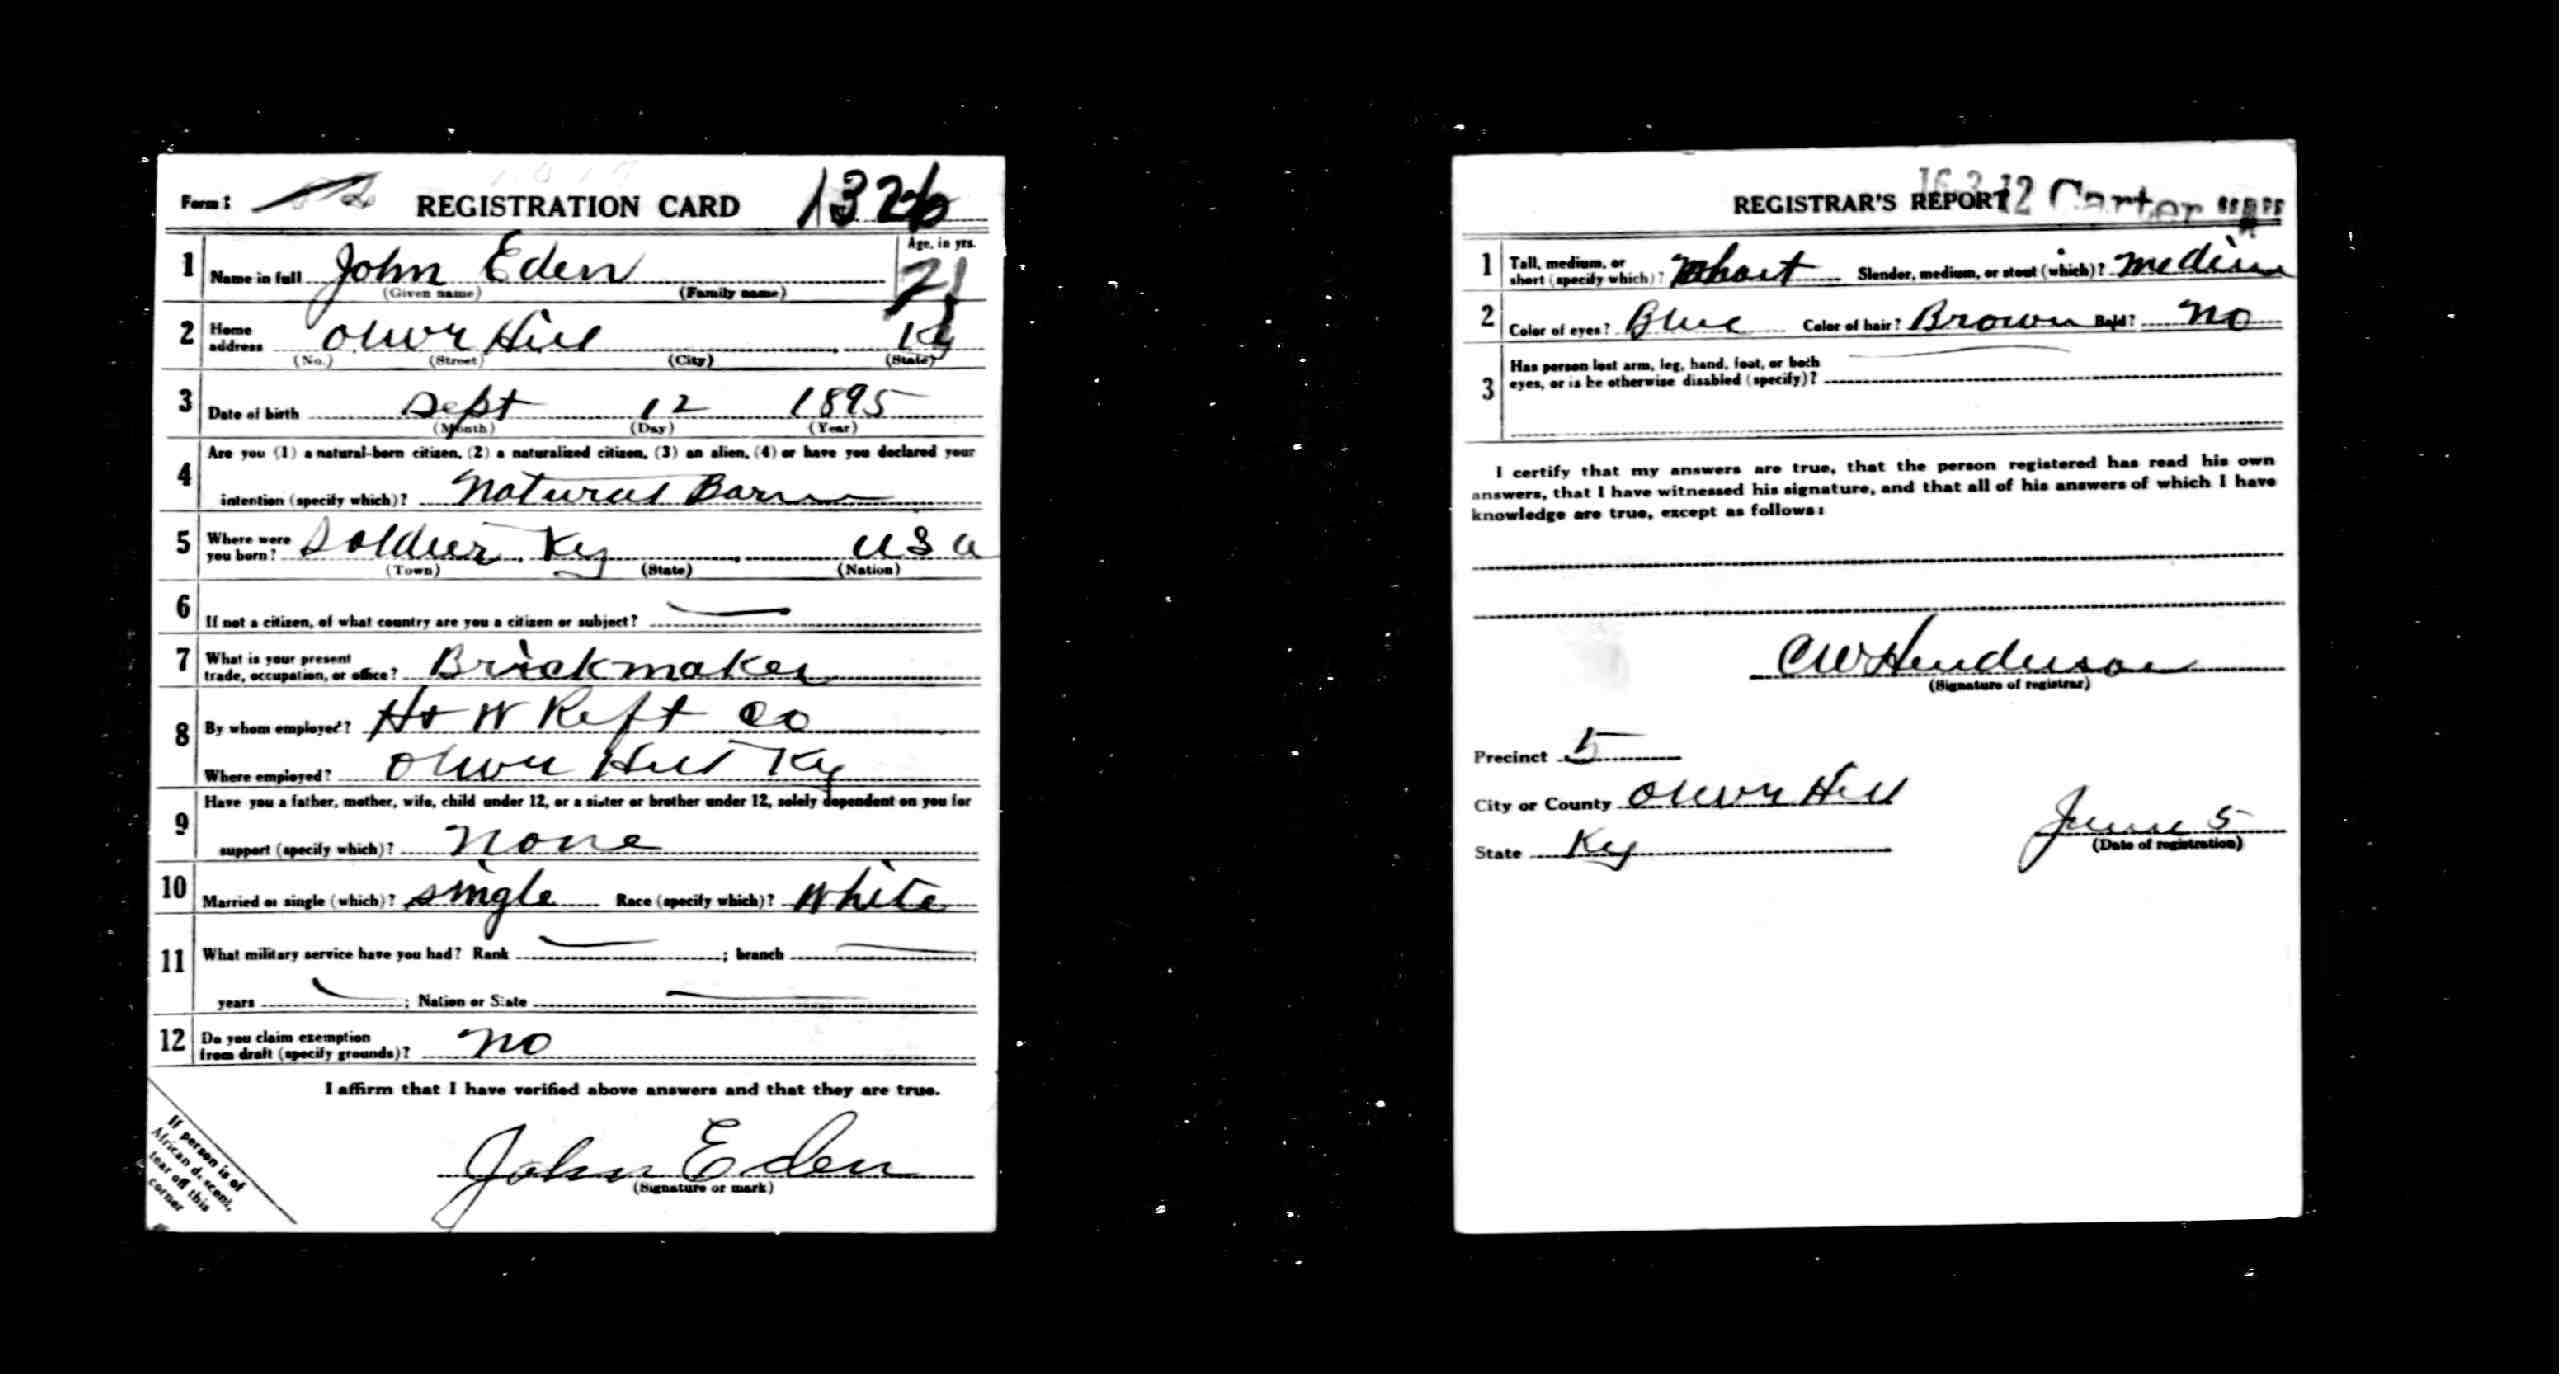 Form 1 REGISTRATION CARD 1326
1 Name in full John Eden Age, in yrs. 21
(Given name) (Family name)
2 Home address Olive Hill Ky
(No.) (Street) (City) (State)
3 Date of birth Sept 12 1895
(Month) (Day) (Year)
4 Are you (1) a natural-born citizen, (2) a naturalized citizen, (3) an alien, (4) or have you declared your
intention (specify which)? Natural Born
5 Where were you born? Soldier, Ky USA
(Town) (State) (Nation)
6 If not a citizen, of what country are you a citizen or subject?
7 What is your present trade, occupation, or office? Brickmaker
8 By whom employed? H & W Reft Co
Where employed? Olive Hill Ky
9 Have you a father, mother, wife, child under 12, or a sister or brother under 12, solely dependent on you for
support (specify which)? None
10 Married or single (which)? single Race (specify which)? White
11 What military service have you had? Rank ; branch ;
years ; Nation or State
12 Do you claim exemption from draft (specify grounds)? No
I affirm that I have verified above answers and that they are true.
John Eden
(Signature or mark)
If person is of
African descent,
tear off this
corner
REGISTRAR'S REPORT 16-3-12 Carter
1 Tall, medium, or short (specify which)? short Slender, medium, or stout (which)? medium
2 Color of eyes? Blue Color of hair? Brown Bald? No
3 Has person lost arm, leg, hand, foot, or both
eyes, or is he otherwise disabled (specify)?
I certify that my answers are true, that the person registered has read his own
answers, that I have witnessed his signature, and that all of his answers of which I have
knowledge are true, except as follows:
CW Henderson
(Signature of registrar)
Precinct 5
City or County Olive Hill
State Ky
June 5
(Date of registration)